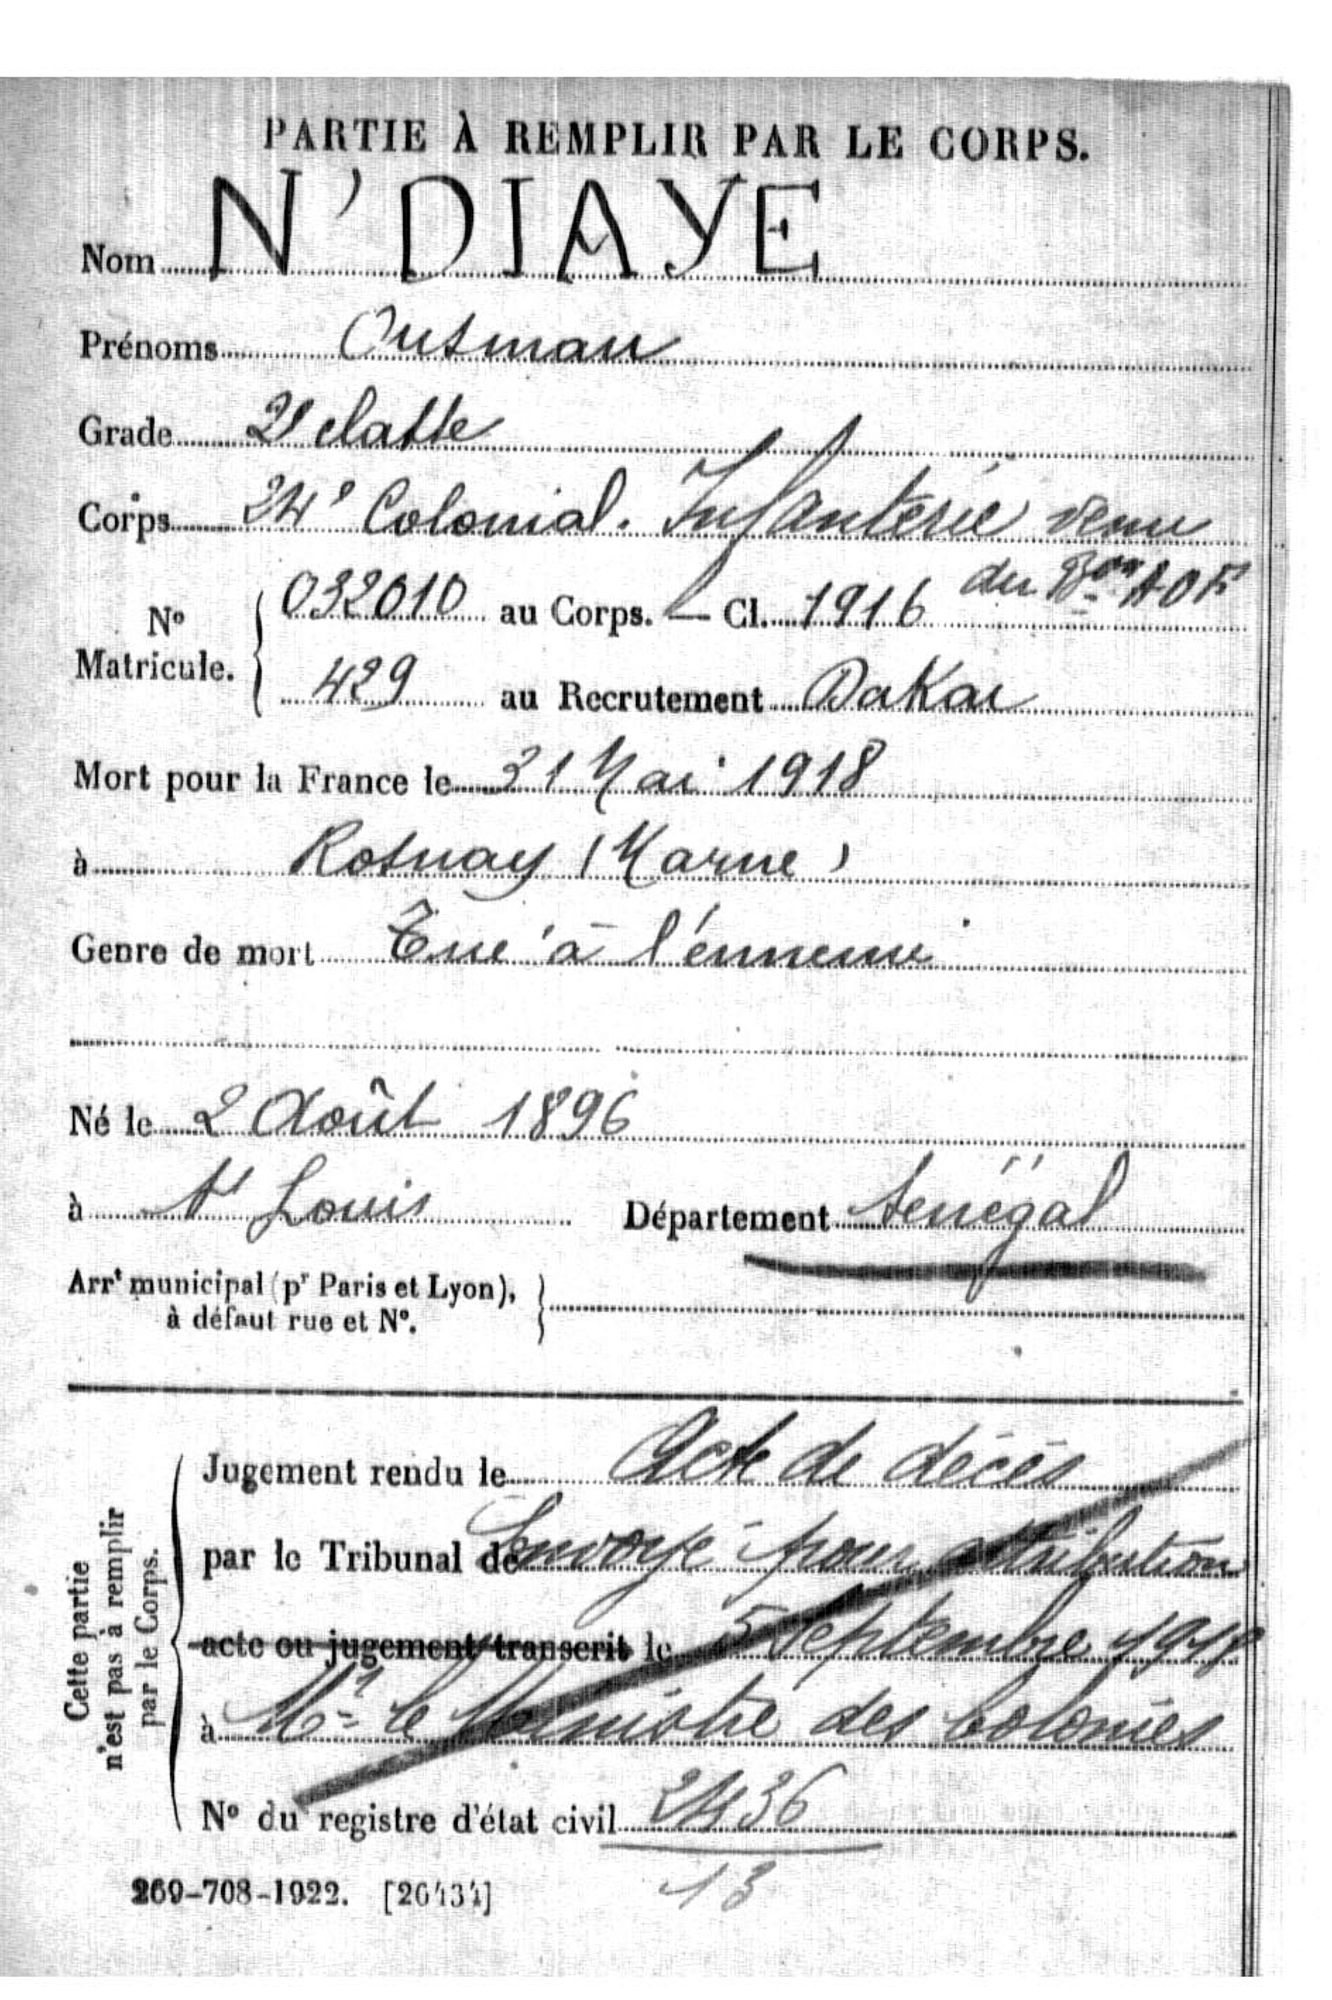 PARTIE À REMPLIR PAR LE CORPS.
Nom N'DIAYE
Prénoms Outman
Grade 2e classe
Corps 24e Colonial. Infanterie venu
du Bon AOF
No Matricule. 032010 au Corps. — Cl. 1916
429 au Recrutement Dakar
Mort pour la France le 31 Mai 1918
à Rosnay (Marne)
Genre de mort Tué à l'ennemi
Né le 2 Août 1896
à St Louis Département Sénégal
Arrt municipal (pr Paris et Lyon),
à défaut rue et No.
Cette partie
n'est pas à remplir
par le Corps.
Jugement rendu le Acte de décès
par le Tribunal de Envoyé pour attribution
acte ou jugement transcrit le 5 Septembre 1918
à Mr le Ministre des Colonies
No du registre d'état civil 2436
13
269-708-1922. [26434]